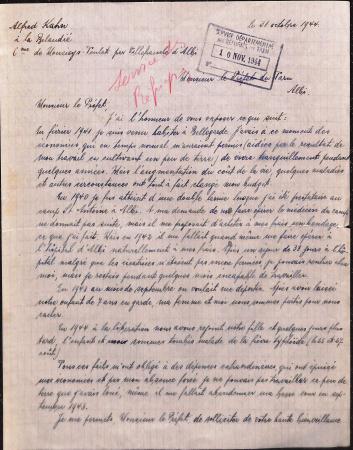 Alfred Kahn
à la Belaudié
Cne de Mouzieys-Teulet par Villefranche d'Albi
le 31 octobre 1944.
SERVICE DÉPARTEMENTAL
DES RÉFUGIÉS DU TARN
10 NOV. 1944
Service des
Réfugiés
Monsieur le Préfet du Tarn
Albi.
Monsieur le Préfet,
J'ai l'honneur de vous exposer ce qui suit:
En février 1941 je suis venu habiter à Bellegarde. J'avais à ce moment des
économies qui en temps normal m'auraient permis (aidées par le résultat de
mon travail en cultivant un peu de terre) de vivre tranquillement pendant
quelques années. Mais l'augmentation du coût de la vie, quelques maladies
et autres circonstances ont tout à fait changé mon budget.
En 1940 je fus atteint d'une double hernie lorsque j'ai été prestataire au
camp St. Antoine à Albi. A ma demande de me faire opérer le médecin du camp
ne donnait pas suite, mais il me proposait d'acheter à mes frais un bandage
ce que j'ai fait. Mais en 1943 il me fallait quand même me faire opérer à
l'hôpital d'Albi naturellement à mes frais. Après un séjour de 38 jours à l'hô-
pital malgré que les cicatrices n'étaient pas encore fermées je pouvais rentrer chez
moi, mais je restais pendant quelques mois incapable de travailler.
En 1943 au mois de septembre on voulait me déporter. Après avoir laissé
notre enfant de 7 ans en garde, ma femme et moi nous sommes partis pour nous
cacher.
En 1944 à la libération nous avons rejoint notre fille et quelques jours plus
tard, l'enfant et nous sommes tombés malade de la fièvre typhoïde, (le 25 et 27
août).
Tous ces faits m'ont obligé à des dépenses extraordinaires, qui ont épuisé
mes économies et par mon absence forcée je ne pouvais pas travailler ce peu de
terre que j'avais loué, même il me fallait abandonner ma basse cour en sep-
tembre 1943.
Je me permets, Monsieur le Préfet de solliciter de votre haute bienveillance